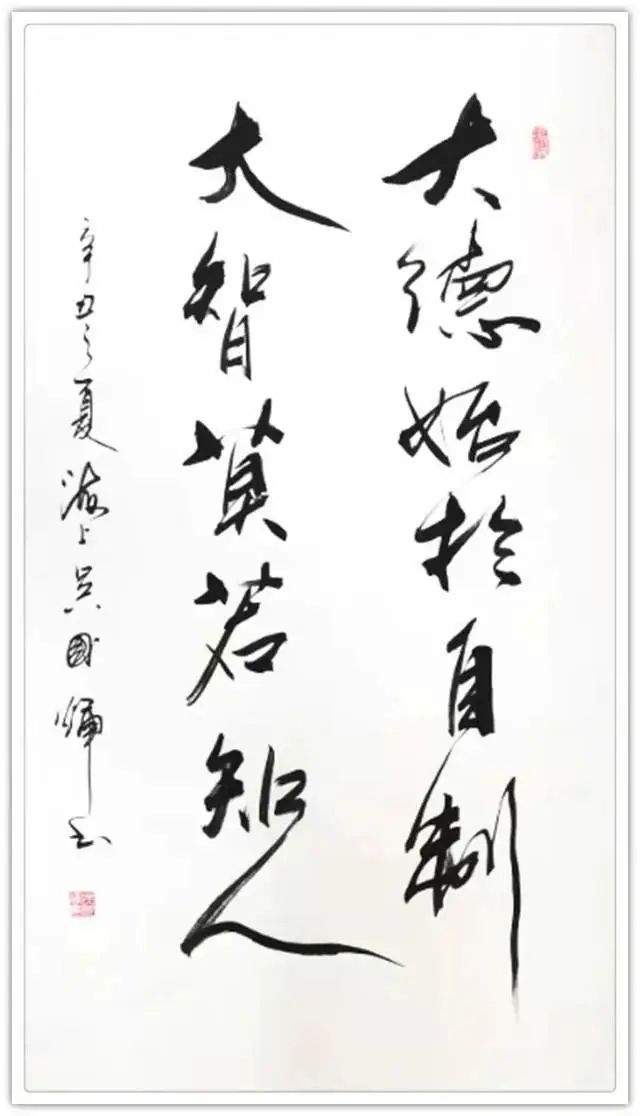 大德始於自制
大智莫若知人
辛丑之夏海上吴國輝书